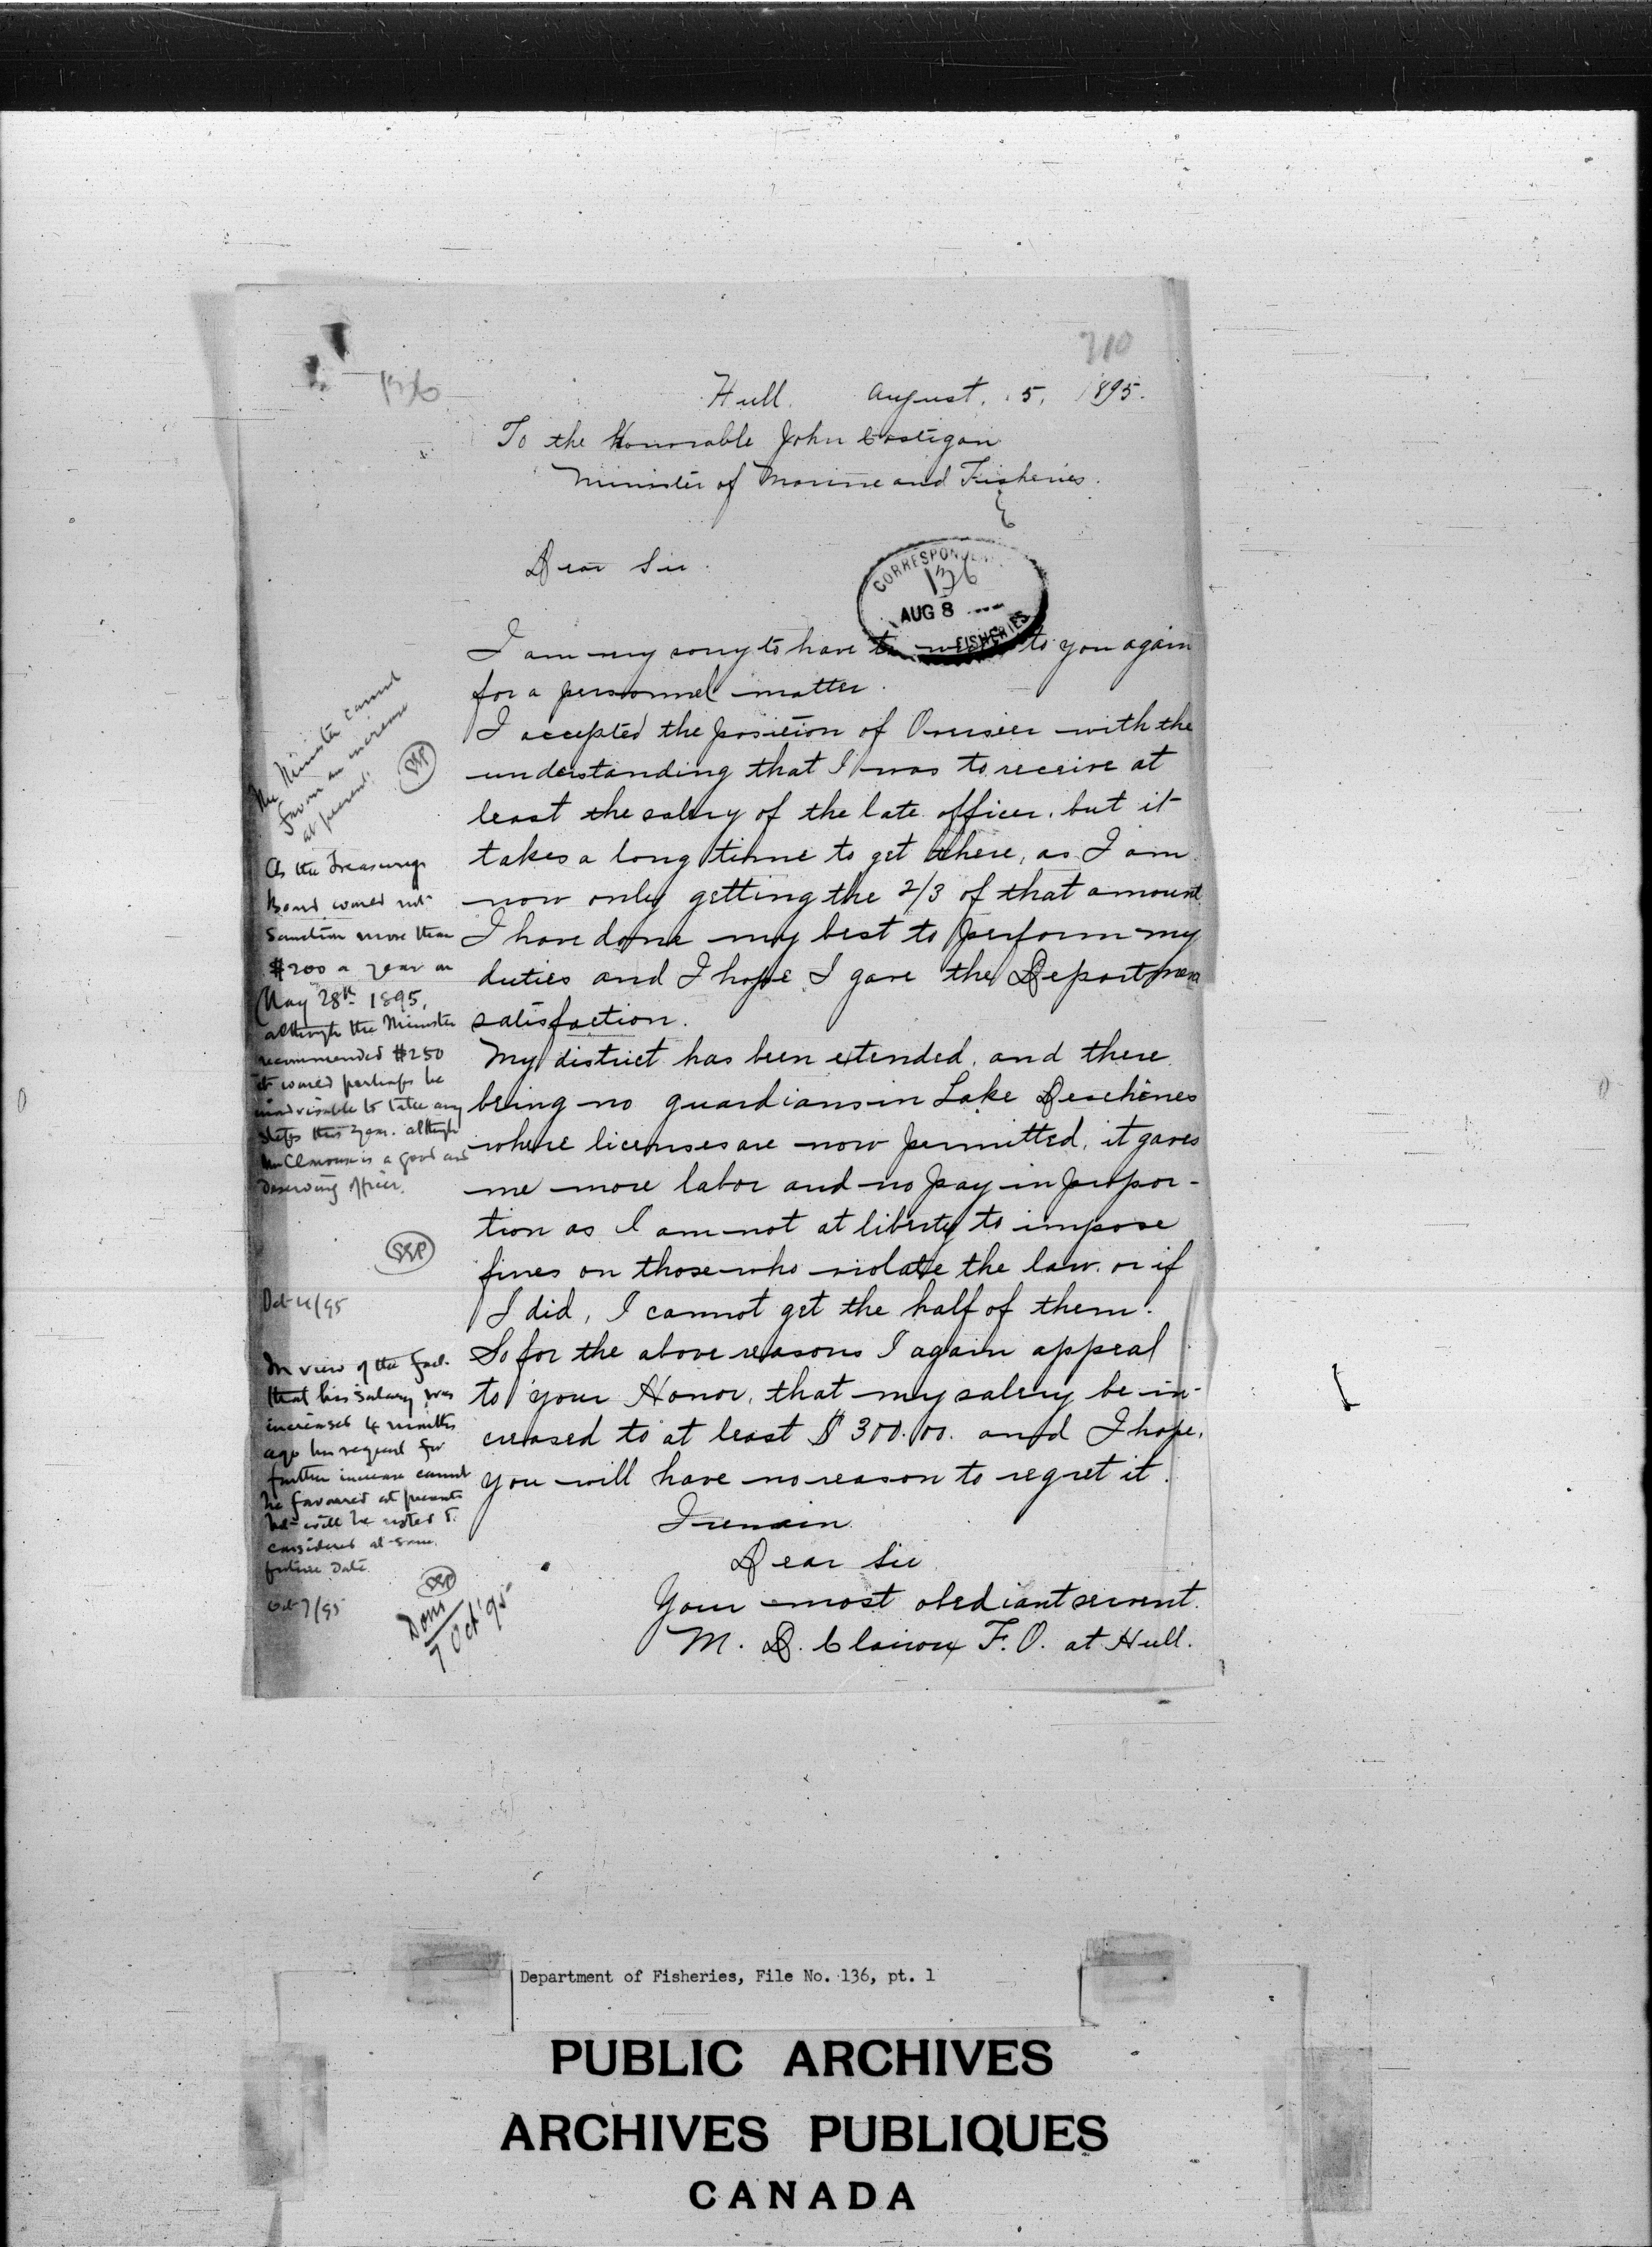 710
136
Hull. August. 5, 1895.
To the Honorable John Costigan
Minister of Marine and Fisheries.
Dear Sir.
CORRESPONDEN
136
AUG 8
FISHERIES
I am very sorry to have to to you again
for a personnel matter.
I accepted the position of Overseer with the
understanding that I was to receive at
least the salery of the late officer. but it
takes a long time to get there, as I am
now only getting the 2/3 of that amount
I have done my best to perform my
duties and I hope I gave the Departmen
satisfaction.
My district has been extended, and there
being no guardians in Lake Deschênes
where licenses are now permitted, it gaves
me more labor and no pay in propor-
tion as I am not at liberty to impose
fines on those who violate the law. or if
I did, I cannot get the half of them.
So for the above reasons I again appeal
to your Honor, that my salery be in-
creased to at least $300.00. and I hope,
you will have no reason to regret it.
I remain
Dear Sir
Your most obediant servent.
M. D. Clairoux F.O. at Hull.
The Minister cannot
favor an increase
at present.
As the Treasury
Board would not
Sanction more than
$200 a year on
May 28th 1895,
although the Minister
recommended $250
it would perhaps be
inadvisable to take any
steps this year. although
is a good and
deserving officer.
Oct 4/95
In view of the fact
that his salary was
increased 4 months
ago his request for
further increase cannot
be favoured at present
but will be noted &
considered at some
future date.
Oct 7/95
Done
7 Oct '95
Department of Fisheries, File No. 136, pt. 1
PUBLIC ARCHIVES
ARCHIVES PUBLIQUES
CANADA